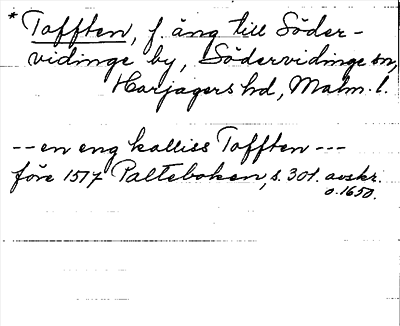 * Tofften, f. äng till Söder-
vidinge by, Södervidinge sn,
Harjagers hd, Malm. l.
-- en eng kalliss Tofften ---
före 1517 Palteboken, s. 301. avskr.
o. 1650.